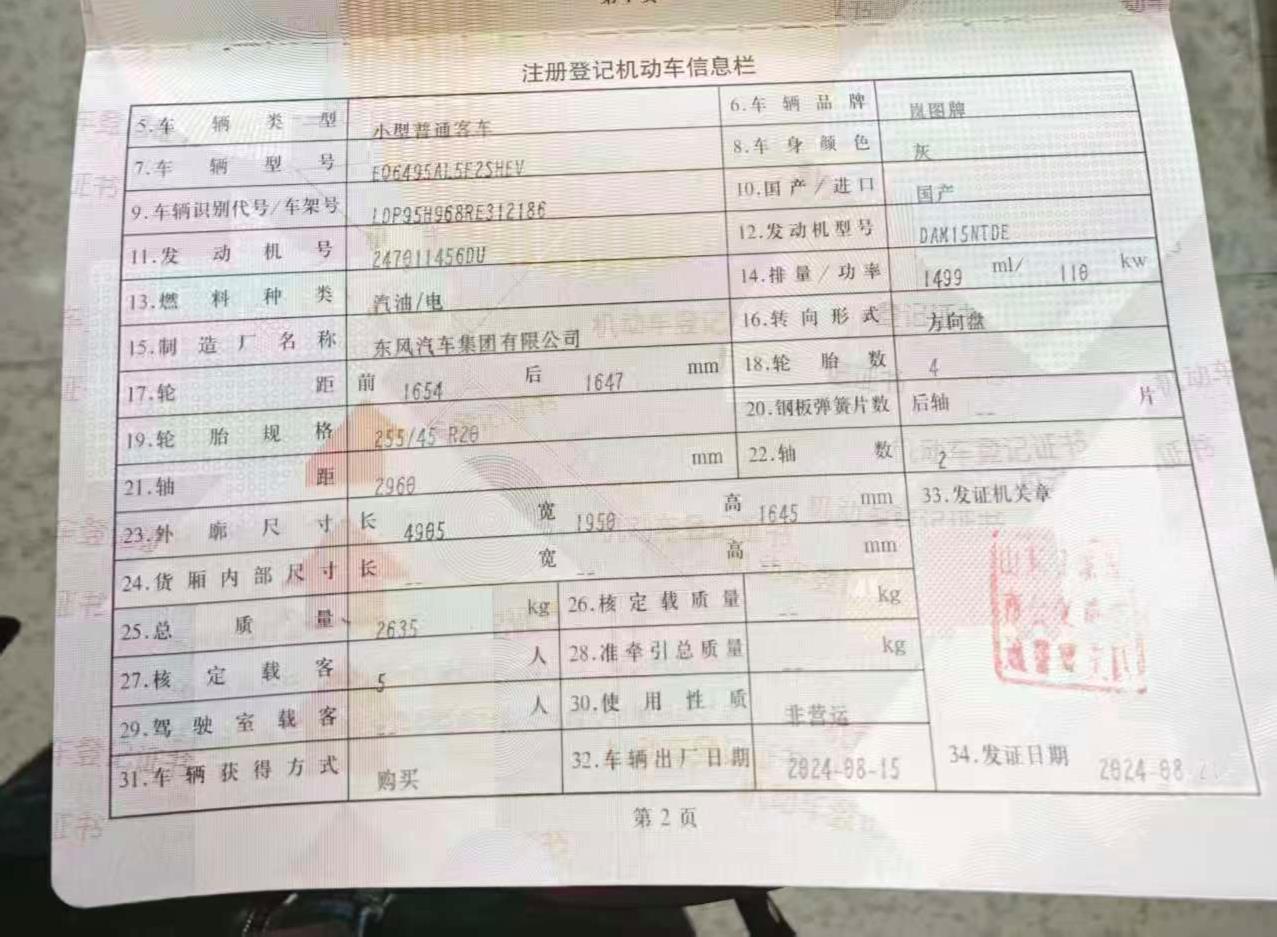 注册登记机动车信息栏
5.车辆类型 小型普通客车 6.车辆品牌 岚图牌
7.车辆型号 EQ6495AL5F2SHEV 8.车身颜色 灰
9.车辆识别代号/车架号 LDP95H968RE312186 10.国产/进口 国产
11.发动机号 247011456DU 12.发动机型号 DAM15NTDE
13.燃料种类 汽油/电 14.排量/功率 1499 ml/ 110 kw
15.制造厂名称 东风汽车集团有限公司 16.转向形式 方向盘
17.轮距 前 1654 后 1647 mm 18.轮胎数 4
19.轮胎规格 255/45 R20 20.钢板弹簧片数 后轴 -- 片
21.轴距 2960 mm 22.轴数 2
23.外廓尺寸 长 4905 宽 1950 高 1645 mm 33.发证机关章
24.货厢内部尺寸 长 -- 宽 -- 高 -- mm
25.总质量 2635 kg 26.核定载质量 -- kg
27.核定载客 5 人 28.准牵引总质量 -- kg
29.驾驶室载客 -- 人 30.使用性质 非营运
31.车辆获得方式 购买 32.车辆出厂日期 2024-08-15 34.发证日期 2024-08
第 2 页